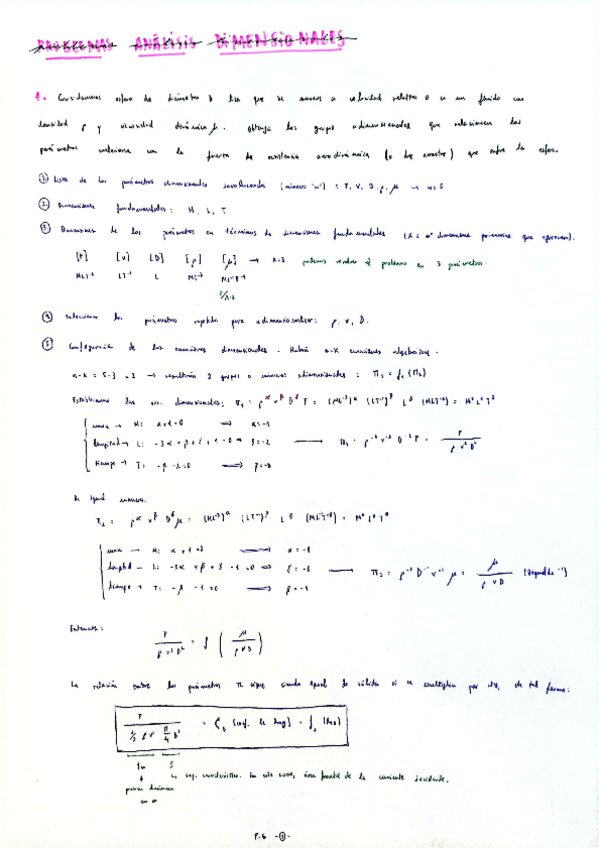 PROBLEMAS ANÁLISIS DIMENSIONALES
1. Consideremos esfera de diámetro D lisa que se mueve a velocidad relativa v en un fluido con
densidad ρ y viscosidad dinámica μ. obtenga los grupos adimensionales que relacionen los
parámetros anteriores con la fuerza de resistencia aerodinámica (o de arrastre) que sufre la esfera.
① Lista de los parámetros dimensionales involucrados (número "n") : F, V, D, ρ, μ → n=5
② Dimensiones fundamentales: M, L, T
③ Dimensiones de los parámetros en términos de dimensiones fundamentales (K = nº dimensiones primarias que aparecen).
[F] [V] [D] [ρ] [μ] → K=3 problema en 3 parámetros
MLT⁻² LT⁻¹ L ML⁻³ ML⁻¹T⁻¹
④ Seleccionar los parámetros repetidos para adimensionalizar: ρ, V, D.
⑤ Configuración de las ecuaciones dimensionales. Habrá n-K ecuaciones algebraicas.
n-K = 5-3 = 2 → resultarán 2 grupos o números adimensionales : Π₁ = f₁(Π₂)
Establecemos las ec. dimensionales: Π₁ = ρ^α V^β D^δ F = (ML⁻³)^α (LT⁻¹)^β L^δ (MLT⁻²) = M⁰L⁰T⁰
masa → M: α+1=0 ⟹ α=-1
longitud → L: -3α+β+δ+1=0 ⟹ δ=-2 → Π₁ = ρ⁻¹ V⁻² D⁻² F = F / ρ V² D²
tiempo → T: -β-2=0 ⟹ β=-2
De igual manera.
Π₂ = ρ^α V^β D^δ μ = (ML⁻³)^α (LT⁻¹)^β L^δ (ML⁻¹T⁻¹) = M⁰L⁰T⁰
masa → M: α+1=0 ⟹ α=-1
longitud → L: -3α+β+δ-1=0 ⟹ δ=-1 → Π₂ = ρ⁻¹ D⁻¹ V⁻¹ μ = μ / ρVD (Reynolds⁻¹)
tiempo → T: -β-1=0 ⟹ β=-1
Entonces:
F / ρ V² D² = f ( μ / ρVD )
La relación entre los parámetros Π sigue siendo igual de válida si se multiplica por cte, de tal forma:
F / ½ ρ V² π/4 D² = C_D (coef. de Drag) = f₂ (Re_D)
S
↳ sup. característica. en este caso, área frontal de la corriente incidente.
presión dinámica
en ∞
P.6 -①-